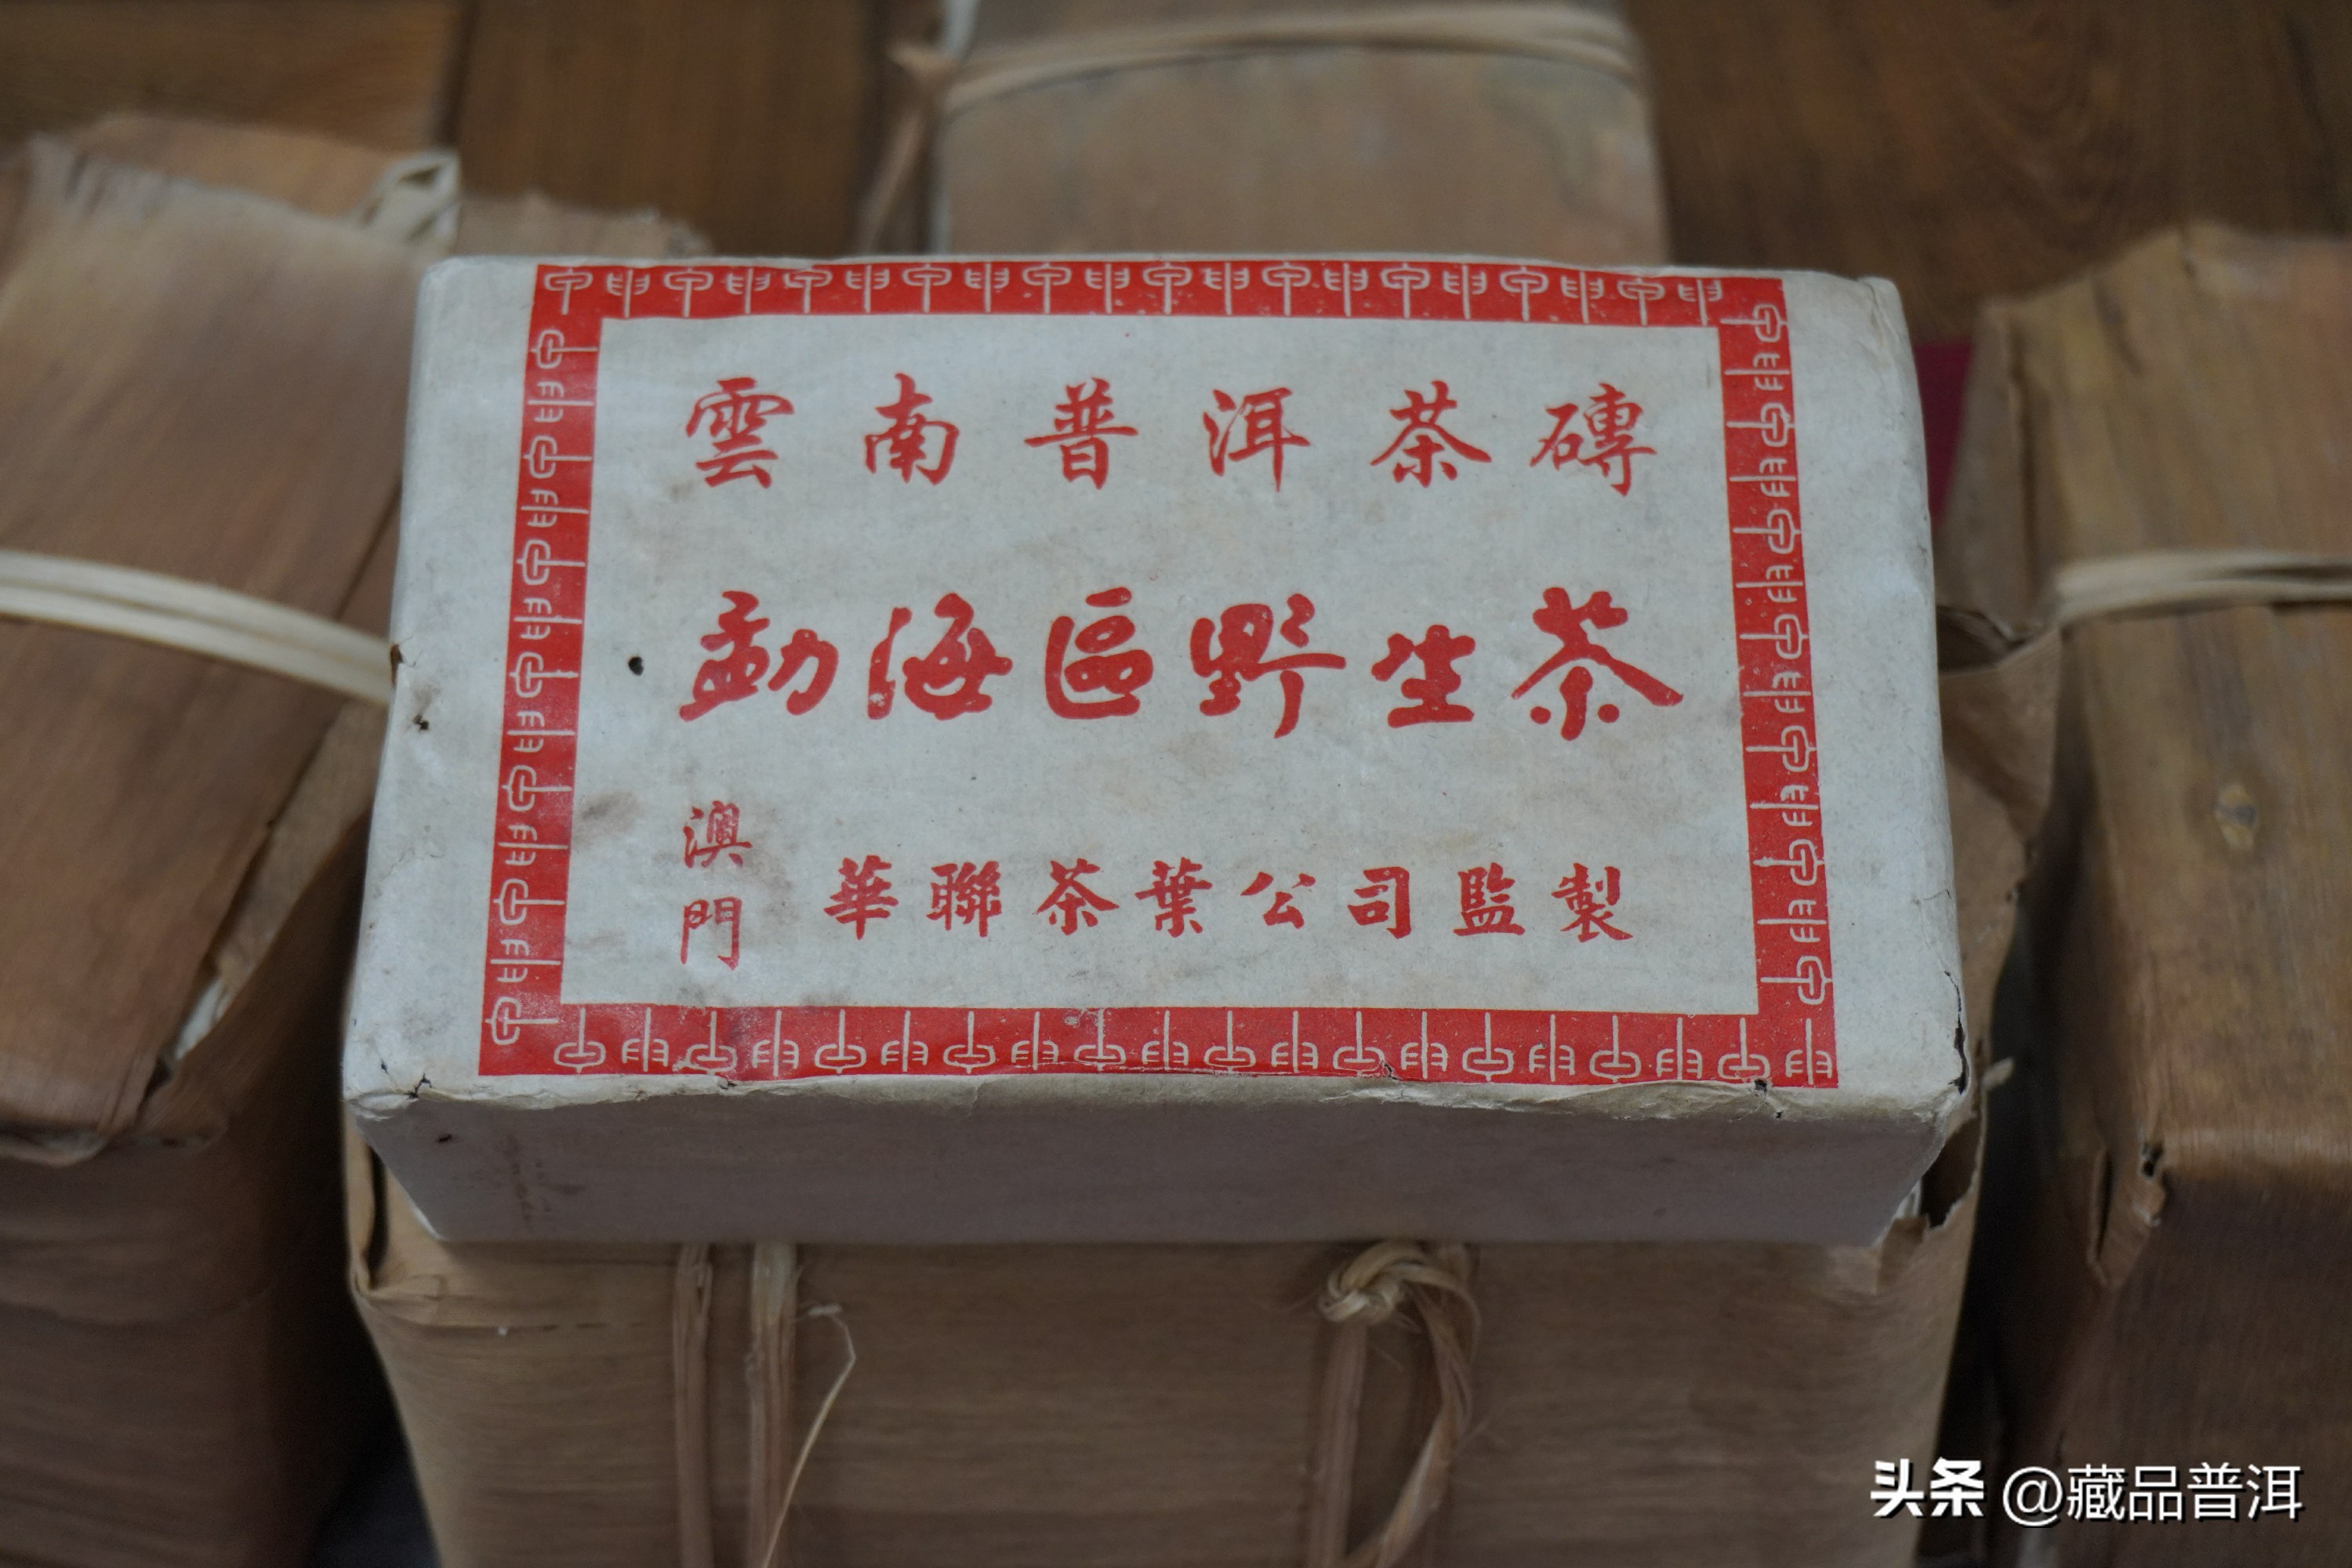 雲南普洱茶磚
勐海區野生茶
澳門
華聯茶葉公司監製
头条 @藏品普洱